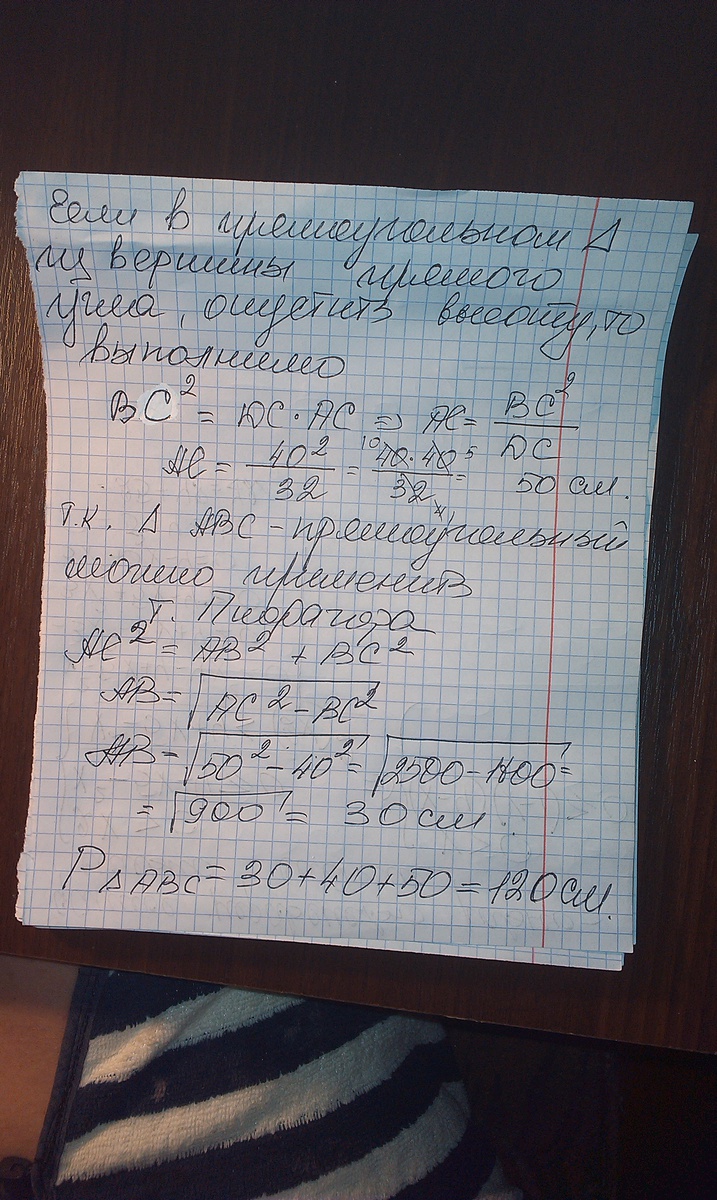 Если в прямоугольном Δ
из вершины прямого
угла, опустить высоту, то
выполнимо
BC² = DC · AC ⇒ AC = BC² / DC
AC = 40² / 32 = 40 · 40 / 32 = 50 см.
10 5 4
Т.К. Δ ABC - прямоугольный
можно применить
Т. Пифагора
AC² = AB² + BC²
AB = √AC² - BC²
AB = √50² - 40² = √2500 - 1600 =
= √900 = 30 см.
P Δ ABC = 30 + 40 + 50 = 120 см.